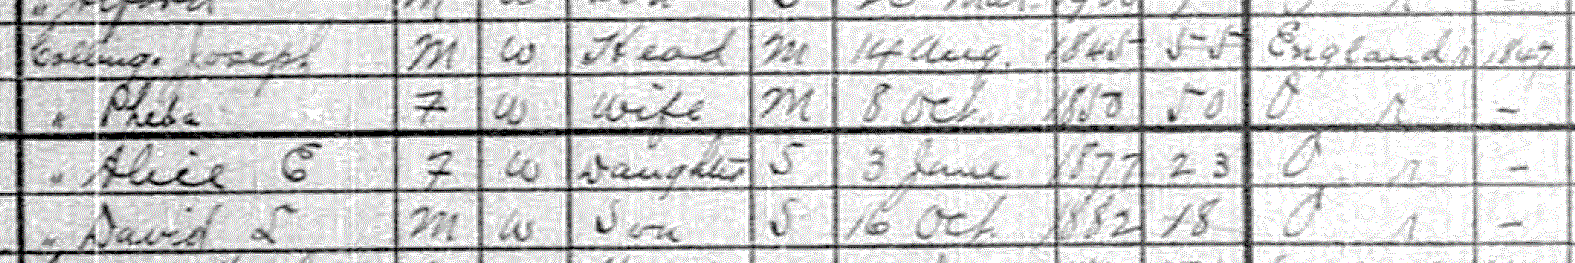 Colling. Joseph M W Head M 14 Aug. 1845 55 England r 1847
" Pheba F W Wife M 8 Oct. 1850 50 O r -
" Alice E F W Daughter S 3 June 1877 23 O r -
" David L M W Son S 16 Oct. 1882 18 O r -